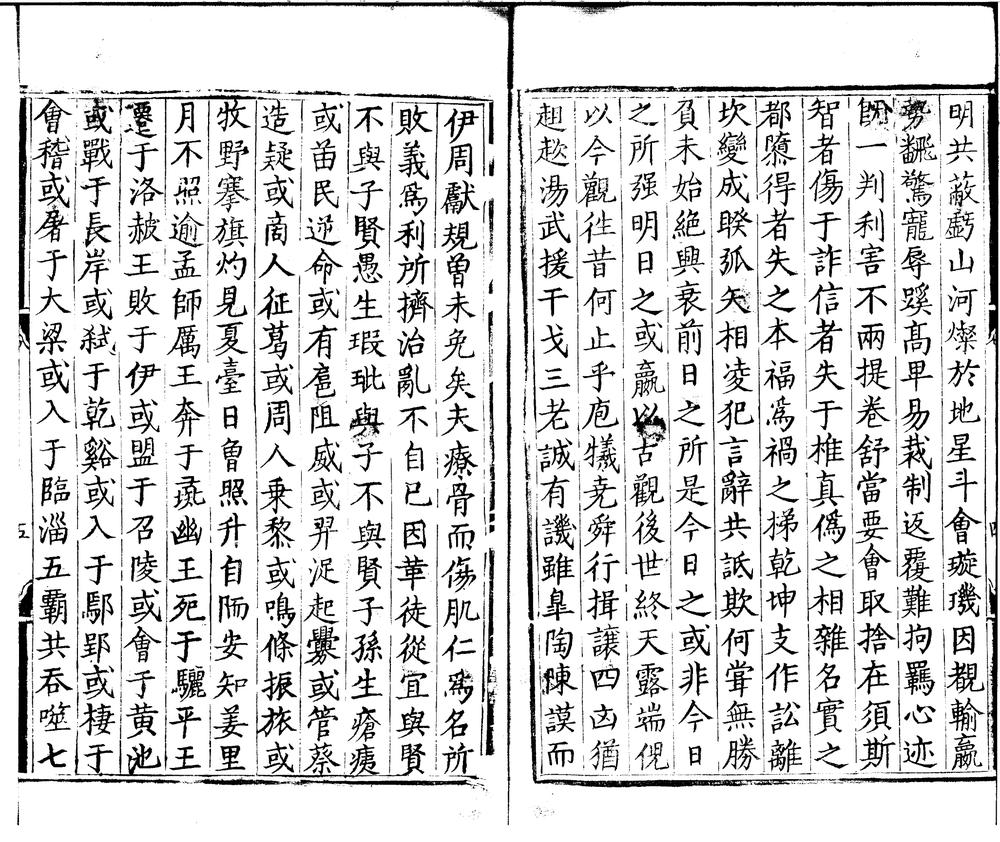 明共蔽虧山河燦於地星斗會璇璣因覩輸嬴
勢翻驚寵辱蹊髙卑易裁制返覆難拘羈心迹
旣一判利害不兩提卷舒當要會取捨在須斯
智者傷于詐信者失于椎真僞之相雜名實之
都隳得者失之本福爲禍之梯乾坤支作訟離
坎變成睽弧矢相凌犯言辭共詆欺何甞無勝
負未始絶興衰前日之所是今日之或非今日
之所强明日之或嬴以古觀後世終天露端倪
以今觀徃昔何止乎庖犧尭舜行揖讓四凶猶
趄趑湯武援干戈三老誠有譏雖臯陶陳謨而
伊周獻規曽未免矣夫療骨而傷肌仁爲名所
敗義爲利所擠治亂不自已因革徒從宜與賢
不與子賢愚生瑕玼與子不與賢子孫生瘡痍
或苗民逆命或有扈阻威或羿浞起釁或管蔡
造疑或商人征葛或周人乗黎或鳴條振旅或
牧野搴旗灼見夏臺日曽照升自陑安知羑里
月不照逾孟師厲王奔于彘幽王死于驪平王
遷于洛赧王敗于伊或盟于召陵或會于黄池
或戰于長岸或弑于乾谿或入于鄢郢或棲于
會稽或屠于大梁或入于臨淄五霸共吞噬七
五